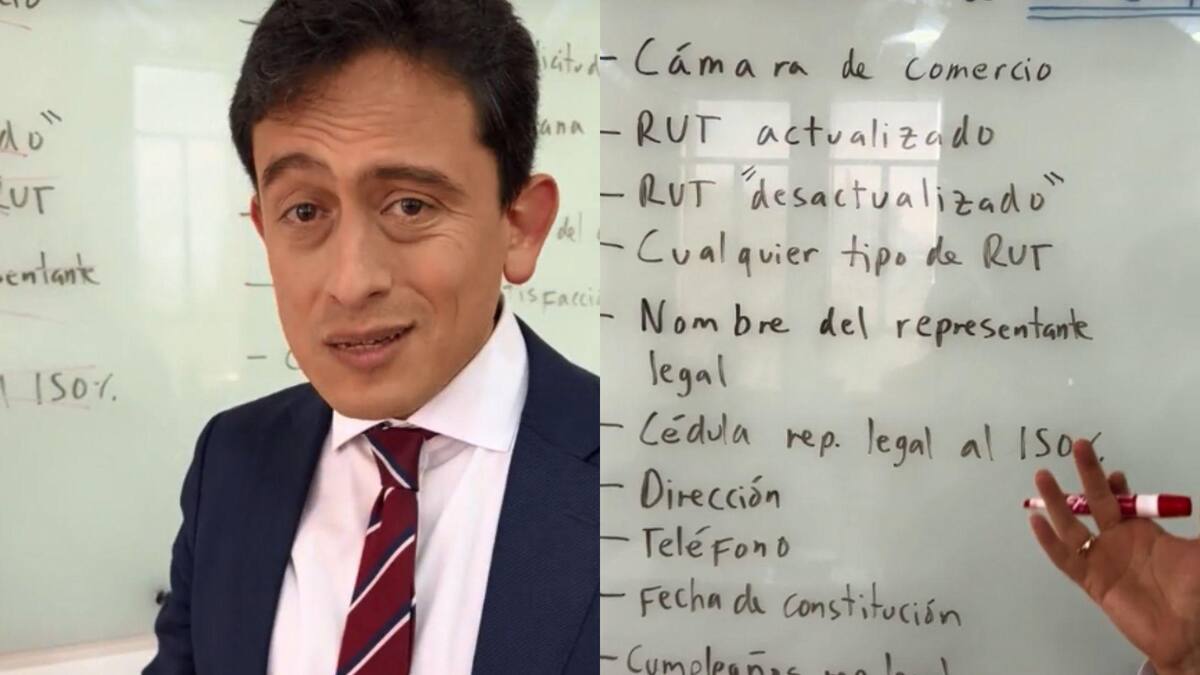 do"
RUT
entante
al 150%.
- Cámara de Comercio
- RUT actualizado
- RUT "desactualizado"
- Cualquier tipo de RUT
- Nombre del representante
legal
- Cédula rep. legal al 150%
- Dirección
- Teléfono
- Fecha de constitución
- Cumpleaños rep. legal